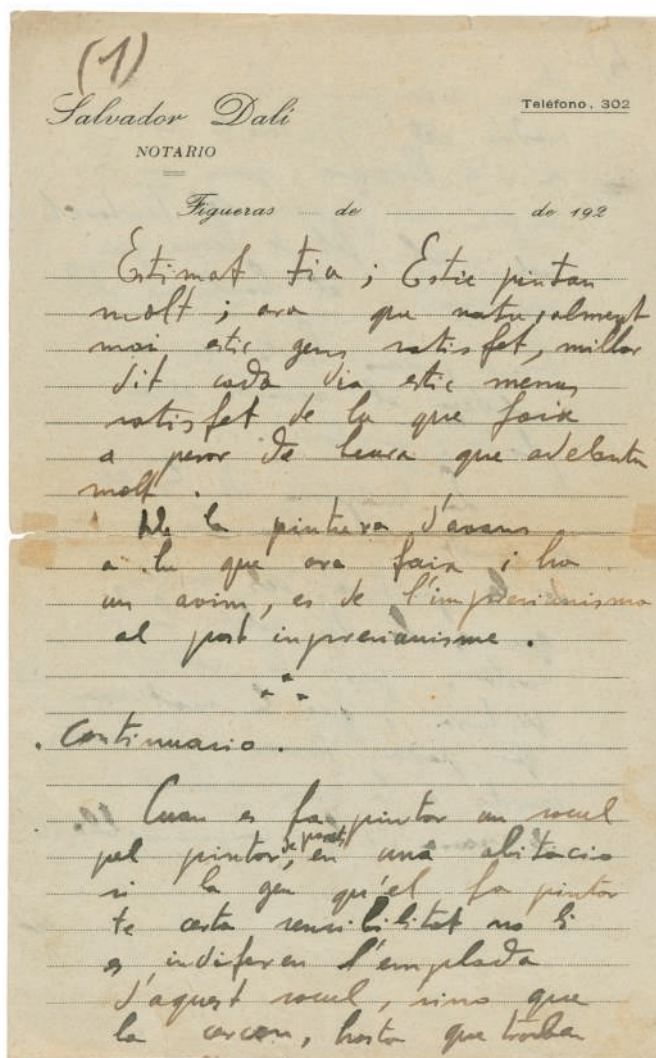 (1)
Salvador Dalí
Teléfono. 302
NOTARIO
Figueras de de 192
Estimat tia ; Estic pintan
molt ; ara que naturalment
mai estic gens satisfet, millor
dit cada dia estic menus
satisfet de lu que faix
a pesar de que adelantu
molt .
De la pintura d'avans
a lu que ara faix i ha
un avim, es de l'impresianisma
al post inpresianisme .
Continuacio .
Cuan es fa pintar un socul
pel pintor, de parets, en una abitacio
si la gen qu'el fa pintar
te certa sensibilitat no li
es indiferen l'emplada
d'aquest socul, sino que
la cercan, hasta que troban